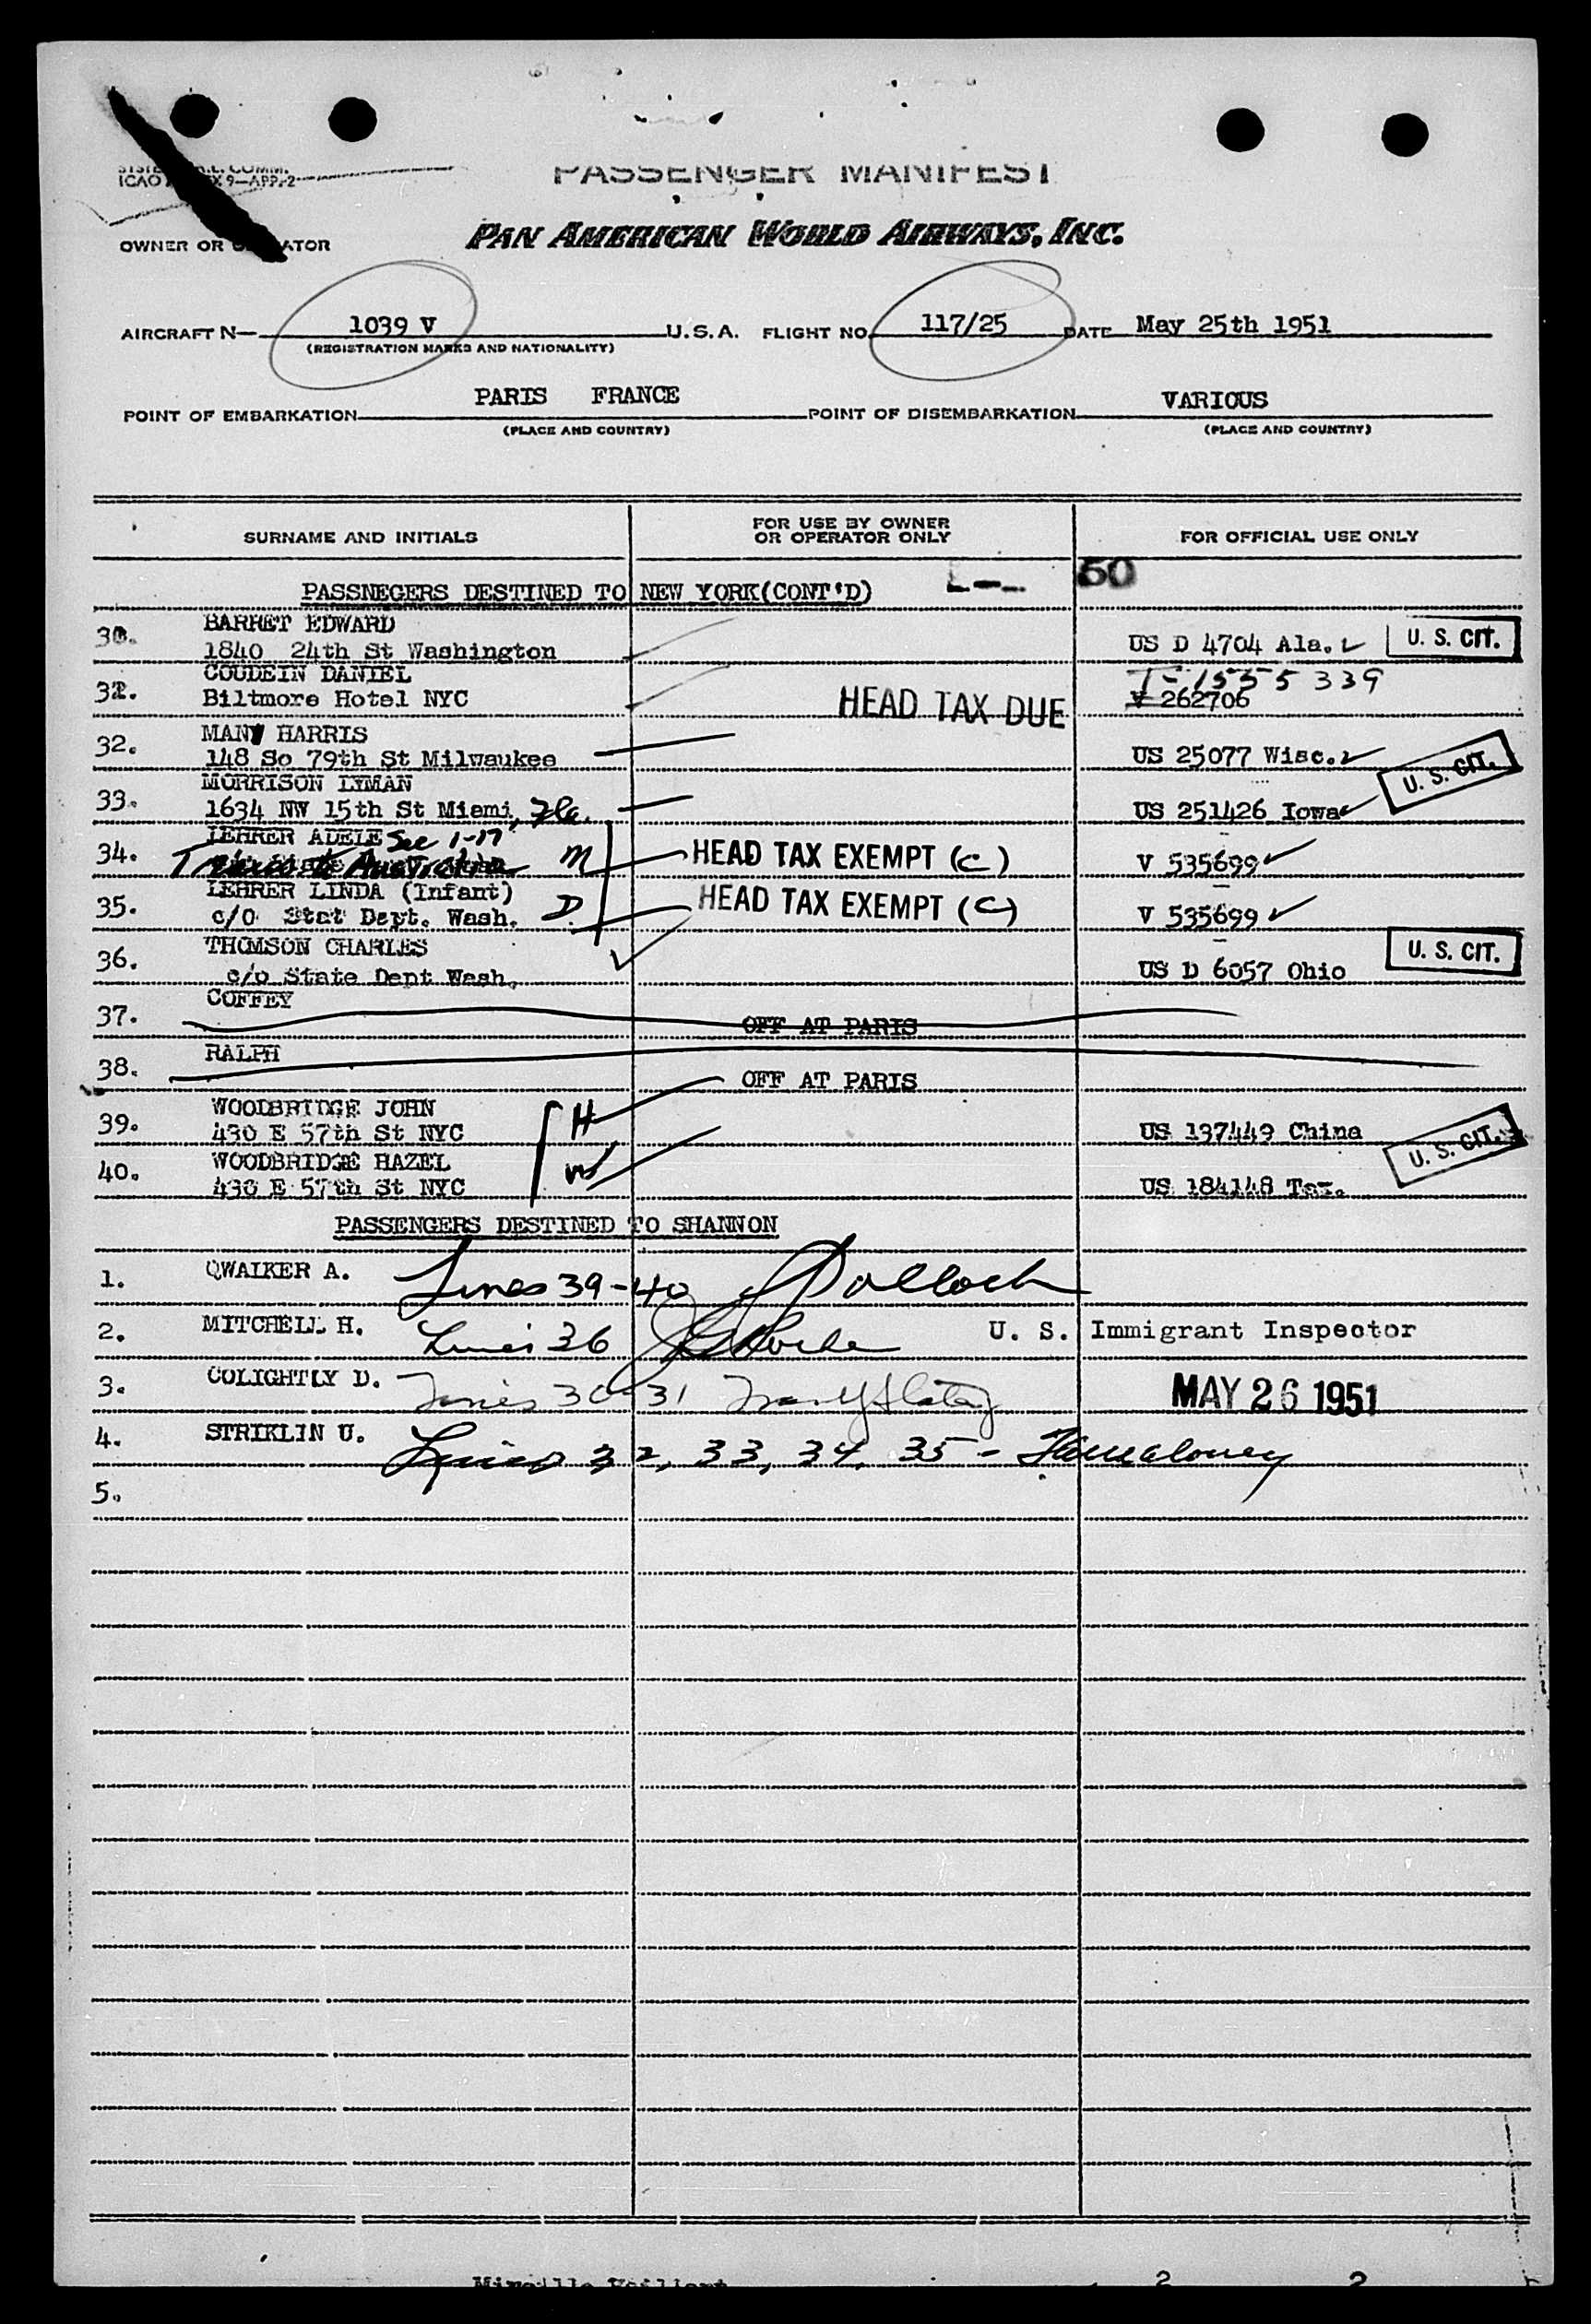 ICAO 9—APP-2
PASSENGER MANIFEST
OWNER OR OPERATOR
PAN AMERICAN WORLD AIRWAYS, INC.
AIRCRAFT N— 1039 V U.S.A. FLIGHT NO. 117/25 DATE May 25th 1951
(REGISTRATION MARKS AND NATIONALITY)
PARIS FRANCE VARIOUS
POINT OF EMBARKATION POINT OF DISEMBARKATION
(PLACE AND COUNTRY) (PLACE AND COUNTRY)
SURNAME AND INITIALS FOR USE BY OWNER OR OPERATOR ONLY FOR OFFICIAL USE ONLY
PASSNEGERS DESTINED TO NEW YORK(CONT'D) 50
30. BARRET EDWARD
1840 24th St Washington US D 4704 Ala. U. S. CIT.
31. COUDEIN DANIEL T-1555339
Biltmore Hotel NYC HEAD TAX DUE V 262706
32. MANY HARRIS
148 So 79th St Milwaukee US 25077 Wisc. U. S. CIT.
33. MORRISON LYMAN
1634 NW 15th St Miami, Fla. US 251426 Iowa
34. LEHRER ADELE See 1-17
M HEAD TAX EXEMPT (C) V 535699
35. LEHRER LINDA (Infant)
c/o Stat Dept. Wash. D HEAD TAX EXEMPT (C) V 535699
36. THOMSON CHARLES
c/o State Dept Wash. US D 6057 Ohio U. S. CIT.
37. COFFEY
OFF AT PARIS
38. RALPH
OFF AT PARIS
39. WOODBRIDGE JOHN H
430 E 57th St NYC US 137449 China U. S. CIT.
40. WOODBRIDGE HAZEL W
430 E 57th St NYC US 184148 Tex.
PASSENGERS DESTINED TO SHANNON
1. QWALKER A. Lines 39-40 Pollock
2. MITCHELL H. Lines 36 U. S. Immigrant Inspector
3. COLIGHTLY D. Lines 30-31 MAY 26 1951
4. STRIKLIN U. Lines 32, 33, 34, 35 -
5.